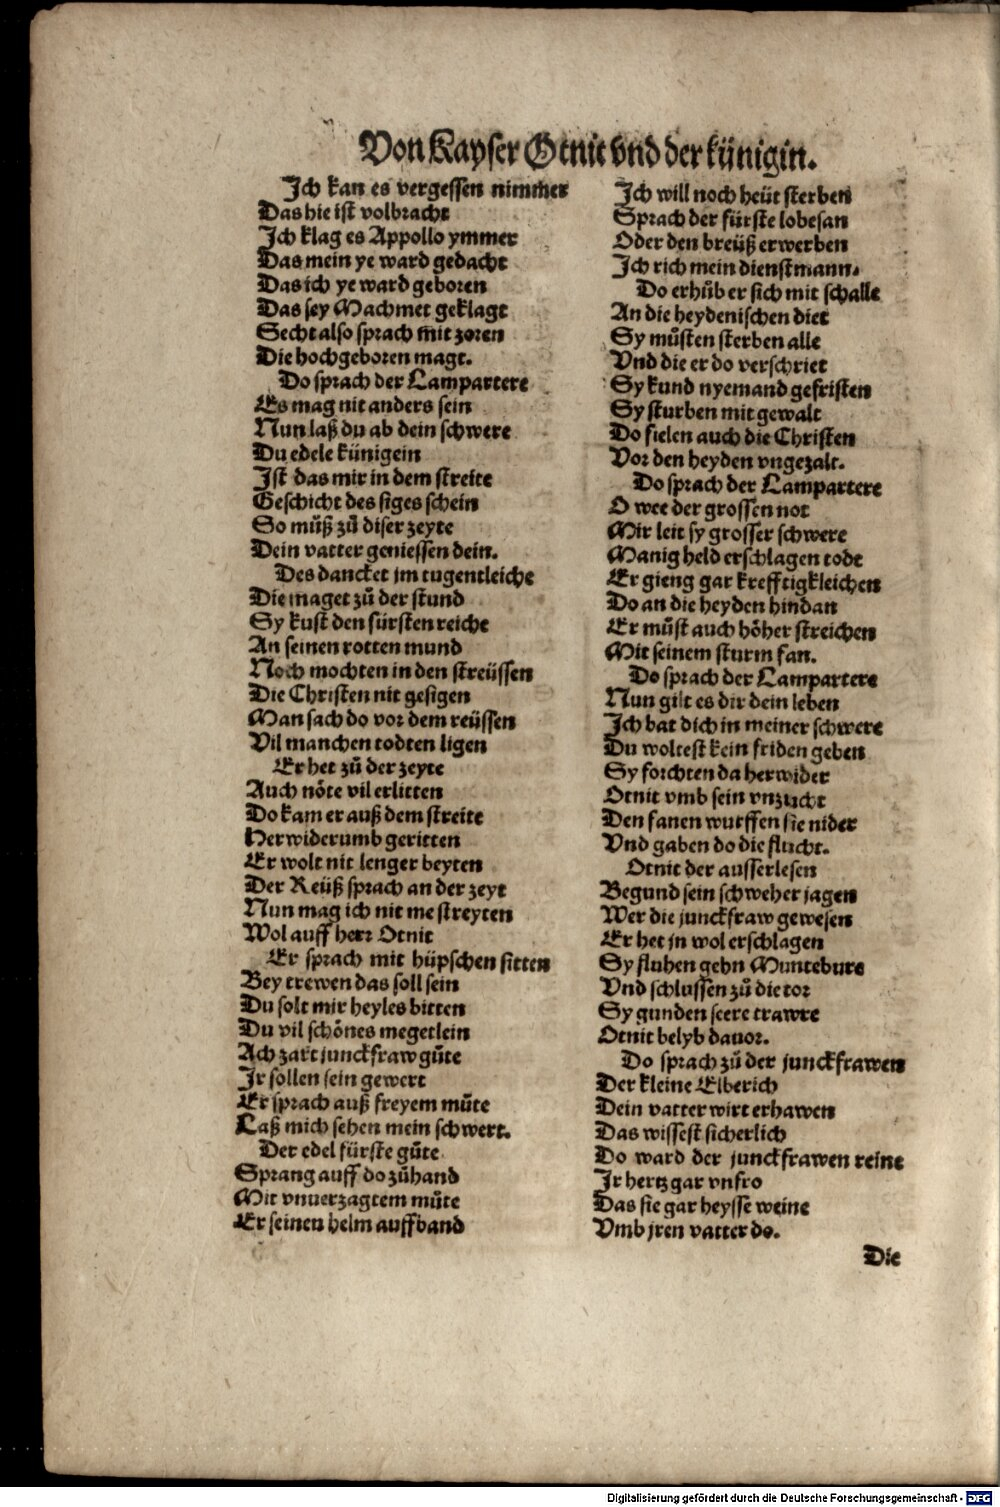 Von Kayser Otnit vnd der künigin.
Ich kan es vergessen nimmer
Das hie ist volbracht
Ich klag es Appollo ymmer
Das mein ye ward gedacht
Das ich ye ward geboren
Das sey Machmet geklagt
Secht also sprach mit zoren
Die hochgeboren magt.
Do sprach der Lampartere
Es mag nit anders sein
Nun laß du ab dein schwere
Du edele künigein
Ist das mir in dem streite
Geschicht des siges schein
So muͤß zuͦ diser zeyte
Dein vatter geniessen dein.
Des dancket jm tugentleiche
Die maget zuͦ der stund
Sy kust den fürsten reiche
An seinen rotten mund
Noch mochten in den streüssen
Die Christen nit gesigen
Man sach do vor dem reüssen
Vil manchen todten ligen
Er het zuͦ der zeyte
Auch nöte vil erlitten
Do kam er auß dem streite
Herwiderumb geritten
Er wolt nit lenger beyten
Der Reüß sprach an der zeyt
Nun mag ich nit me streyten
Wol auff herr Otnit
Er sprach mit hüpschen sitten
Bey trewen das soll sein
Du solt mir heyles bitten
Du vil schönes megetlein
Ach zart junckfraw guͤte
Ir sollen sein gewert
Er sprach auß freyem muͦte
Laß mich sehen mein schwert.
Der edel fürste guͦte
Sprang auff do zuͦhand
Mit vnuerzagtem muͦte
Er seinen helm auffband
Ich will noch heüt sterben
Sprach der fürste lobesan
Oder den breüß erwerben
Ich rich mein dienstmann.
Do erhuͦb er sich mit schalle
An die heydenischen diet
Sy muͤsten sterben alle
Vnd die er do verschriet
Sy kund nyemand gefristen
Sy sturben mit gewalt
Do fielen auch die Christen
Vor den heyden vngezalt.
Do sprach der Lampartere
O wee der grossen not
Mir leit sy grosser schwere
Manig held erschlagen todt
Er gieng gar krefftigkleichen
Do an die heyden hindan
Er muͤst auch höher streichen
Mit seinem sturm fan.
Do sprach der Lampartere
Nun gilt es dir dein leben
Ich bat dich in meiner schwere
Du woltest kein friden geben
Sy forchten da herwider
Otnit vmb sein vnzucht
Den fanen wurffen sie nider
Vnd gaben do die flucht.
Otnit der ausserlesen
Begund sein schweher jagen
Wer die junckfraw gewesen
Er het jn wol erschlagen
Sy fluhen gehn Muntebure
Vnd schlussen zuͦ die tor
Sy gunden seere trawre
Otnit belyb dauor.
Do sprach zuͦ der junckfrawen
Der kleine Elberich
Dein vatter wirt erhawen
Das wissest sicherlich
Do ward der junckfrawen reine
Ir hertz gar vnfro
Das sie gar heysse weine
Vmb jren vatter do.
Die
Digitalisierung gefördert durch die Deutsche Forschungsgemeinschaft - DFG